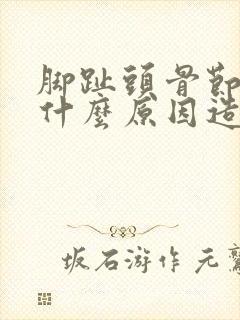 脚趾頭骨節
什麼原因造
坂石游作元